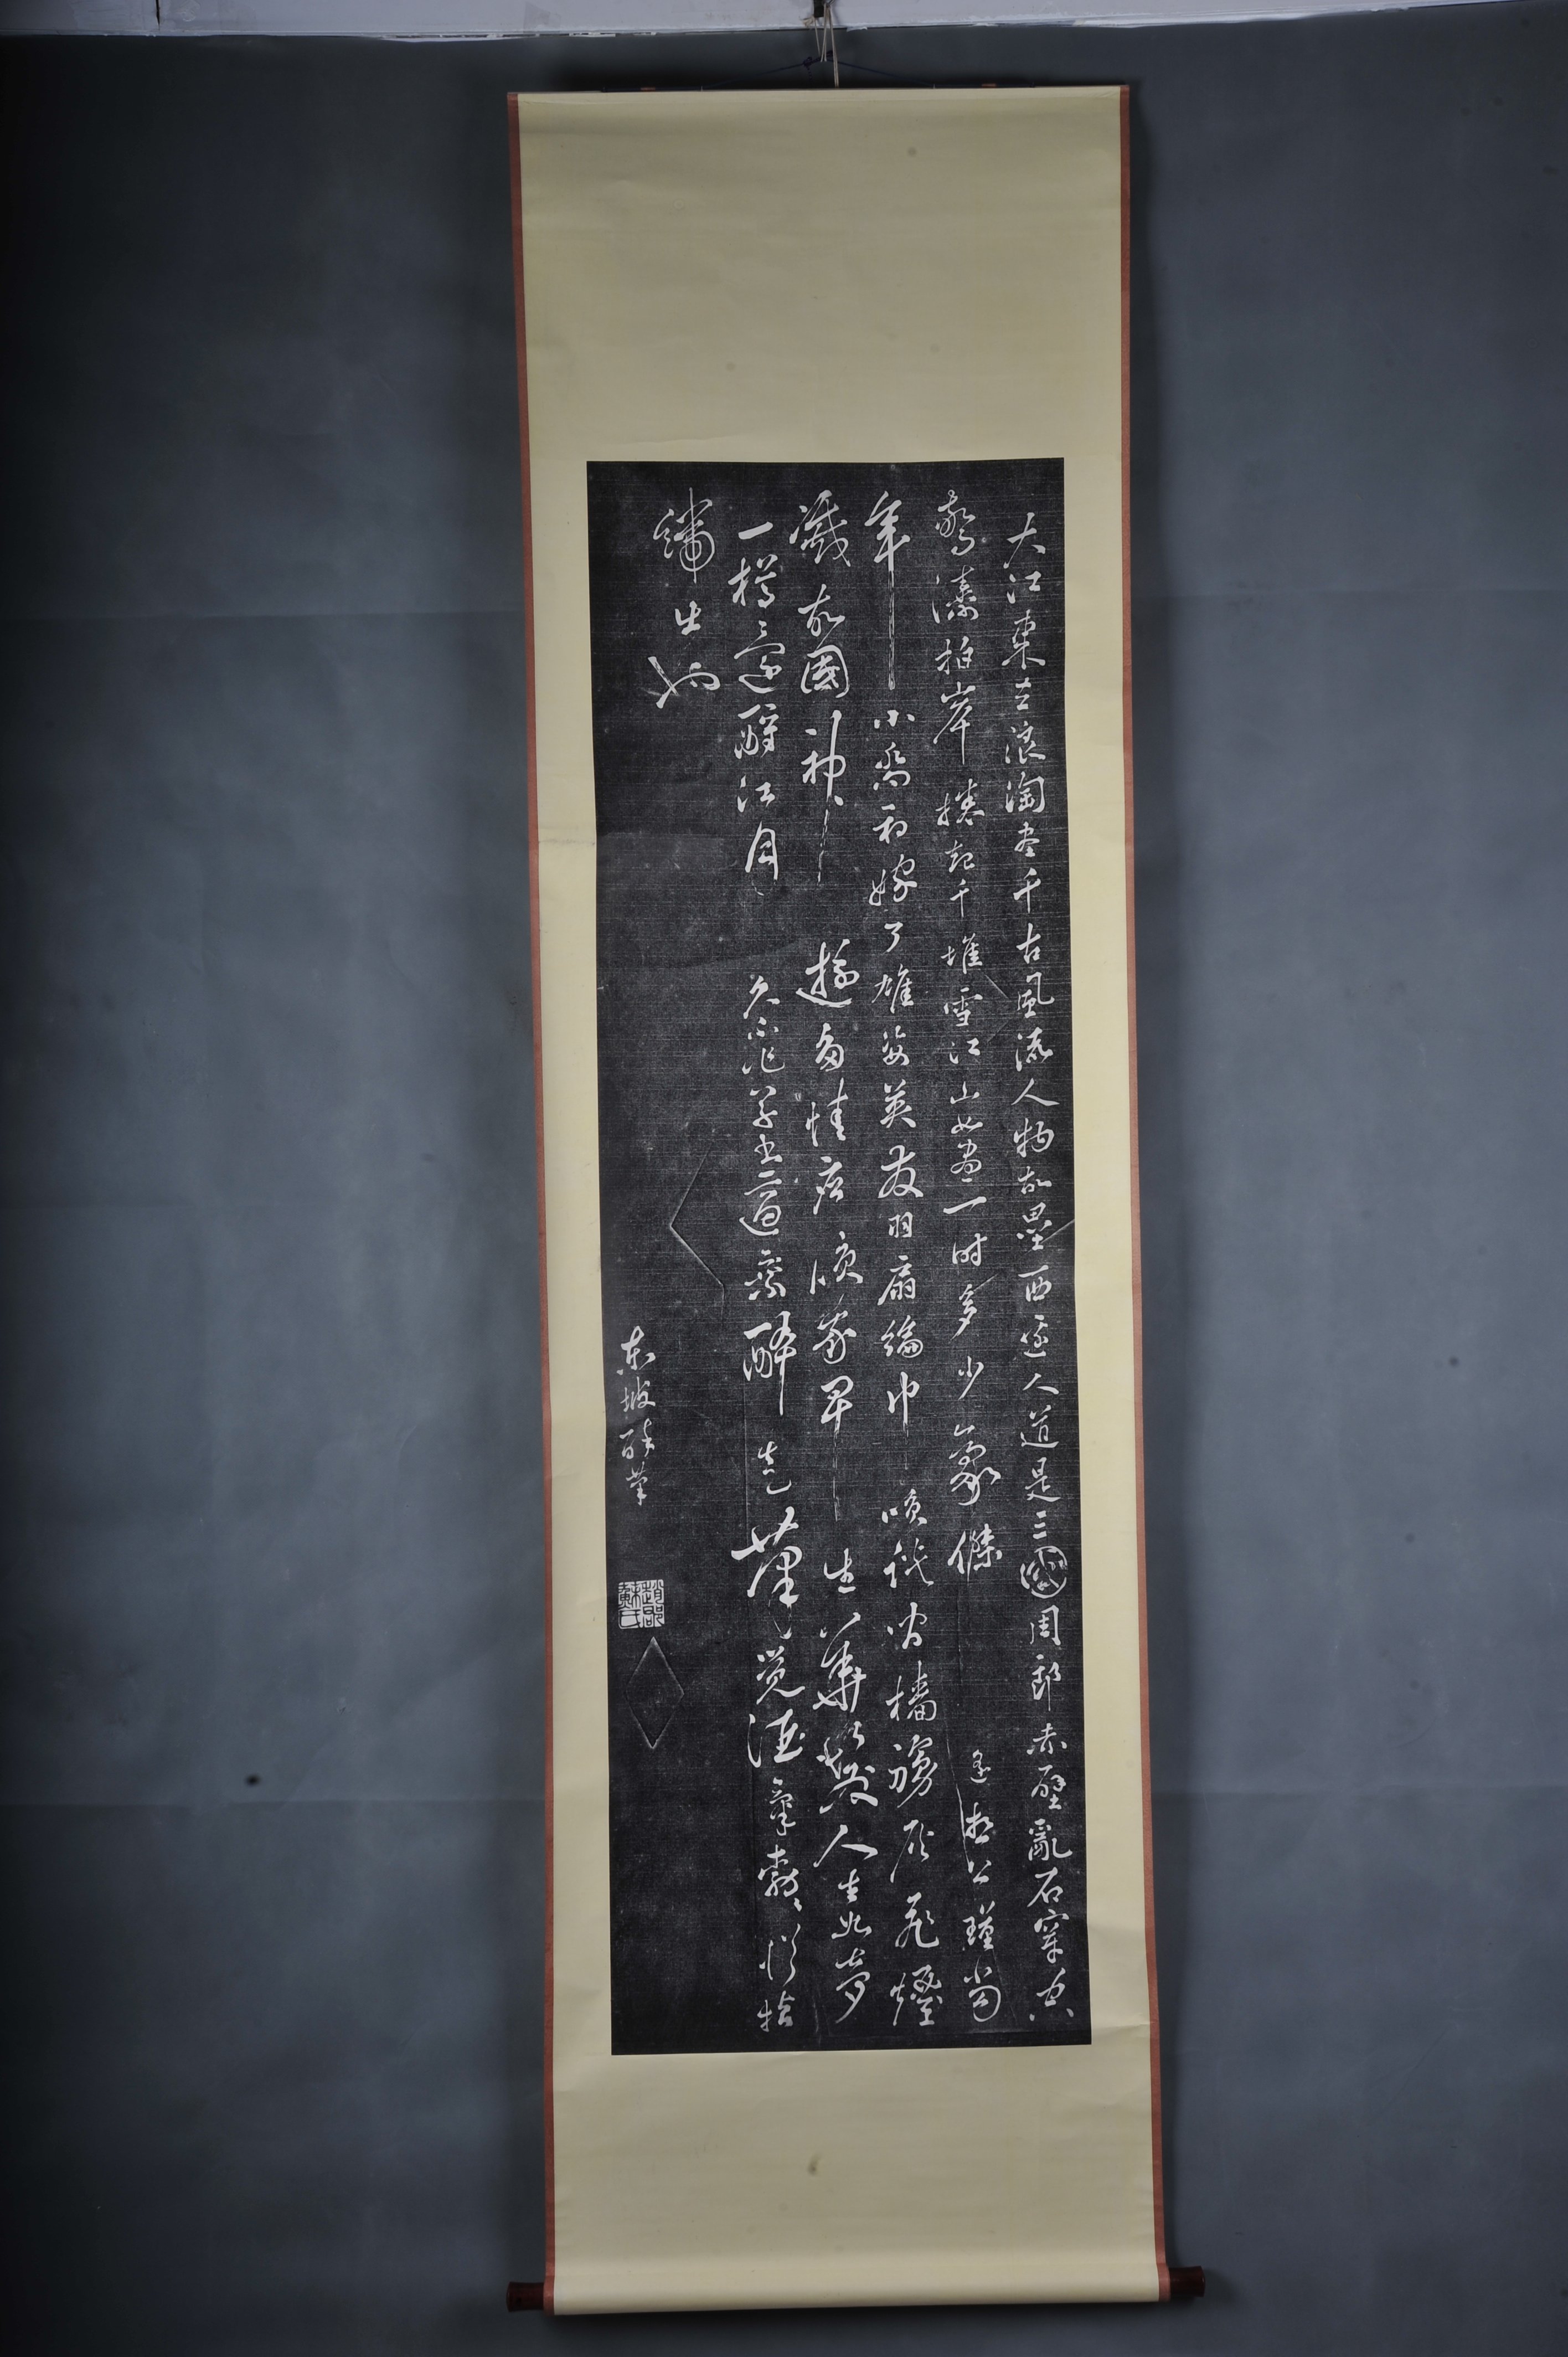 大江東去浪淘盡千古風流人物故壘西邊人道是三國周郎赤壁亂石穿空
驚濤拍岸捲起千堆雪江山如畫一時多少豪傑遙想公瑾當
年小喬初嫁了雄姿英發羽扇綸巾笑談間檣艣灰飛煙
滅故國神遊多情應笑我早生華髮人生如夢
一樽還酹江月久不作草書適乘醉走筆覺酒氣勃勃從指
端出也
東坡醉筆
趙郡蘇氏